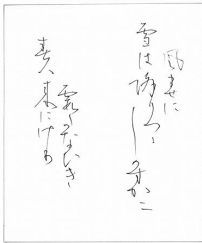 風ませに
雪は降りつゝしかすかに
霞たなひき
春八来にけり